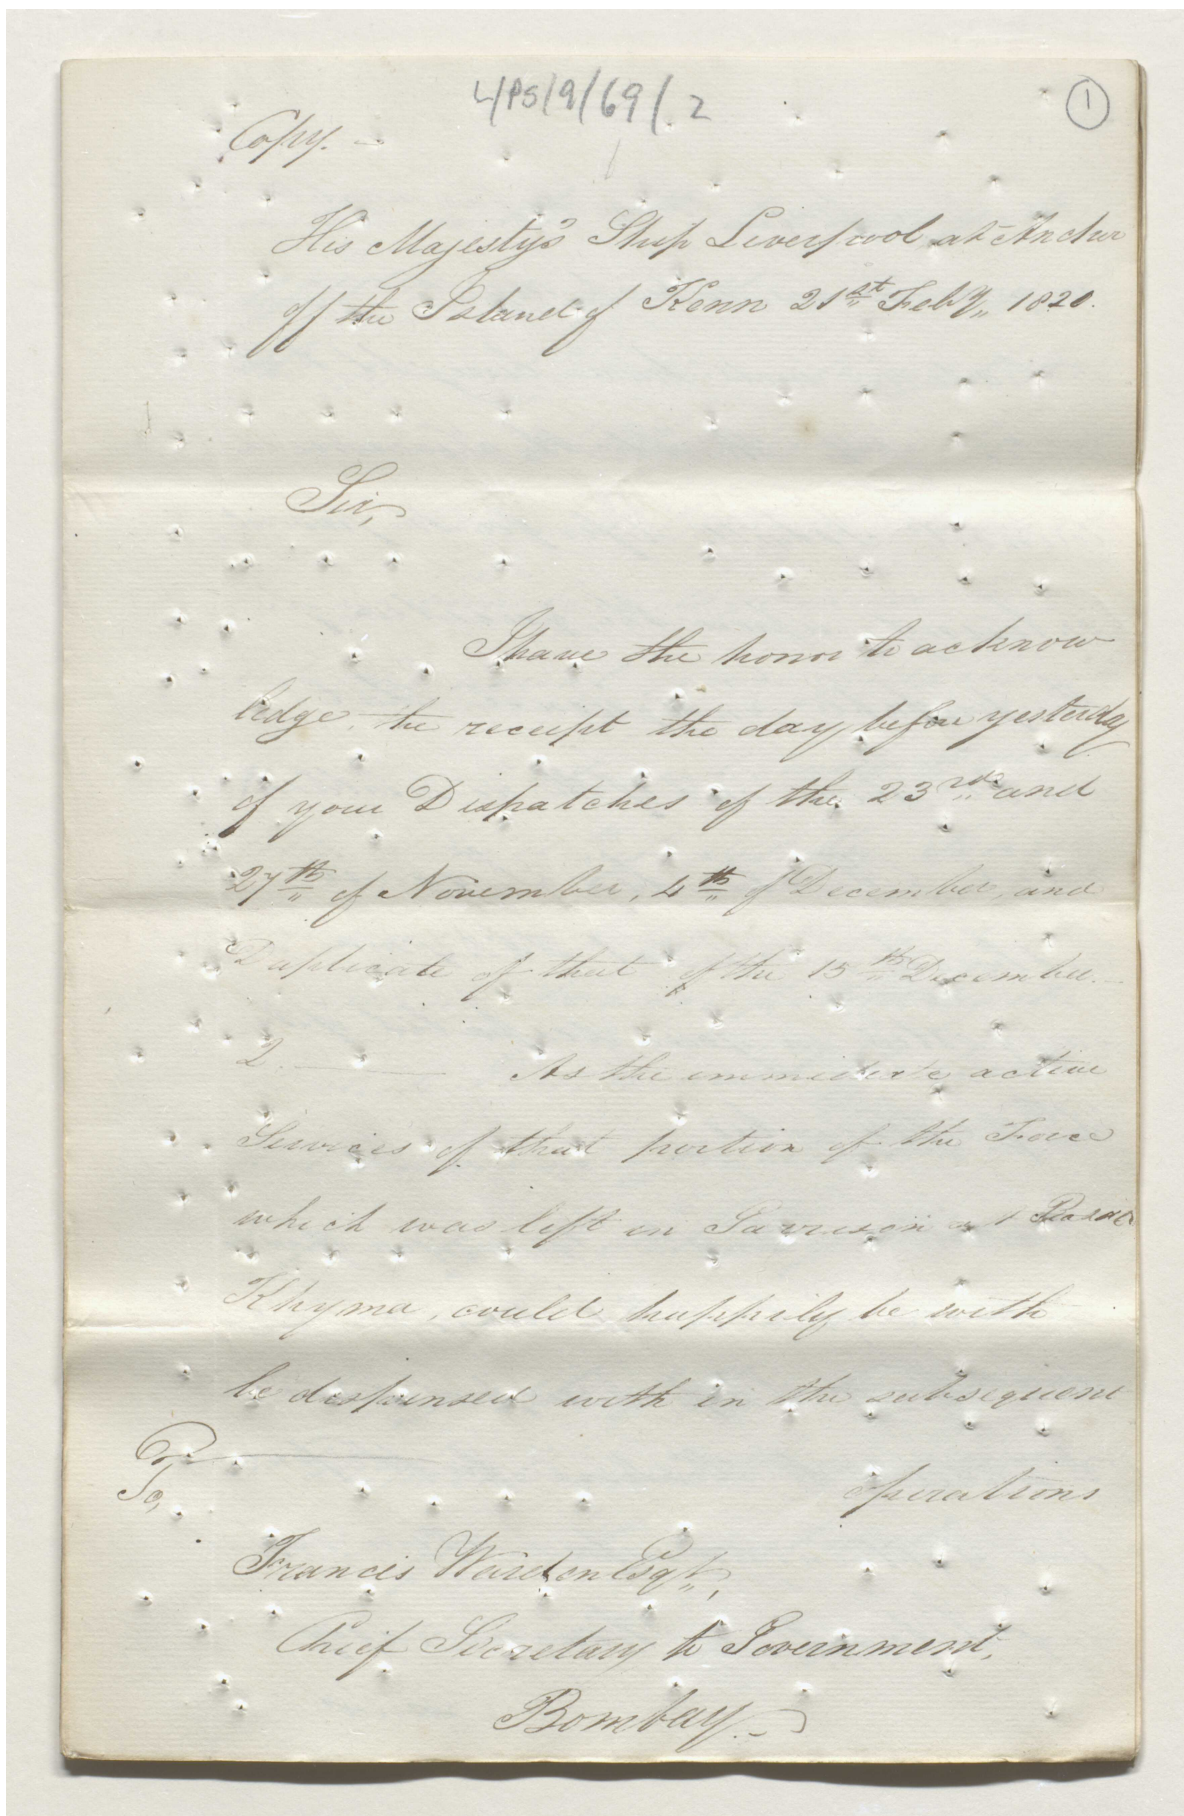 L/PS/9/69/.2
1
Copy. —
His Majesty's Ship Liverpool at Anchor
off the Island of Kenn 21st Feby,, 1820.
Sir,
I have the honor to acknow
ledge the receipt the day before yesterday
of your Dispatches of the 23rd and
27th of November, 4th of December, and
Duplicate of that of the 15th December. —
2. — As the immediate active
Services of that portion of the Force
which was left in Garrison at Rasal
Khyma, could happily be with
be despensed with in the subsequent
operations
To,
Francis Warden Esqr,,,
Chief Secretary to Government,
Bombay. —